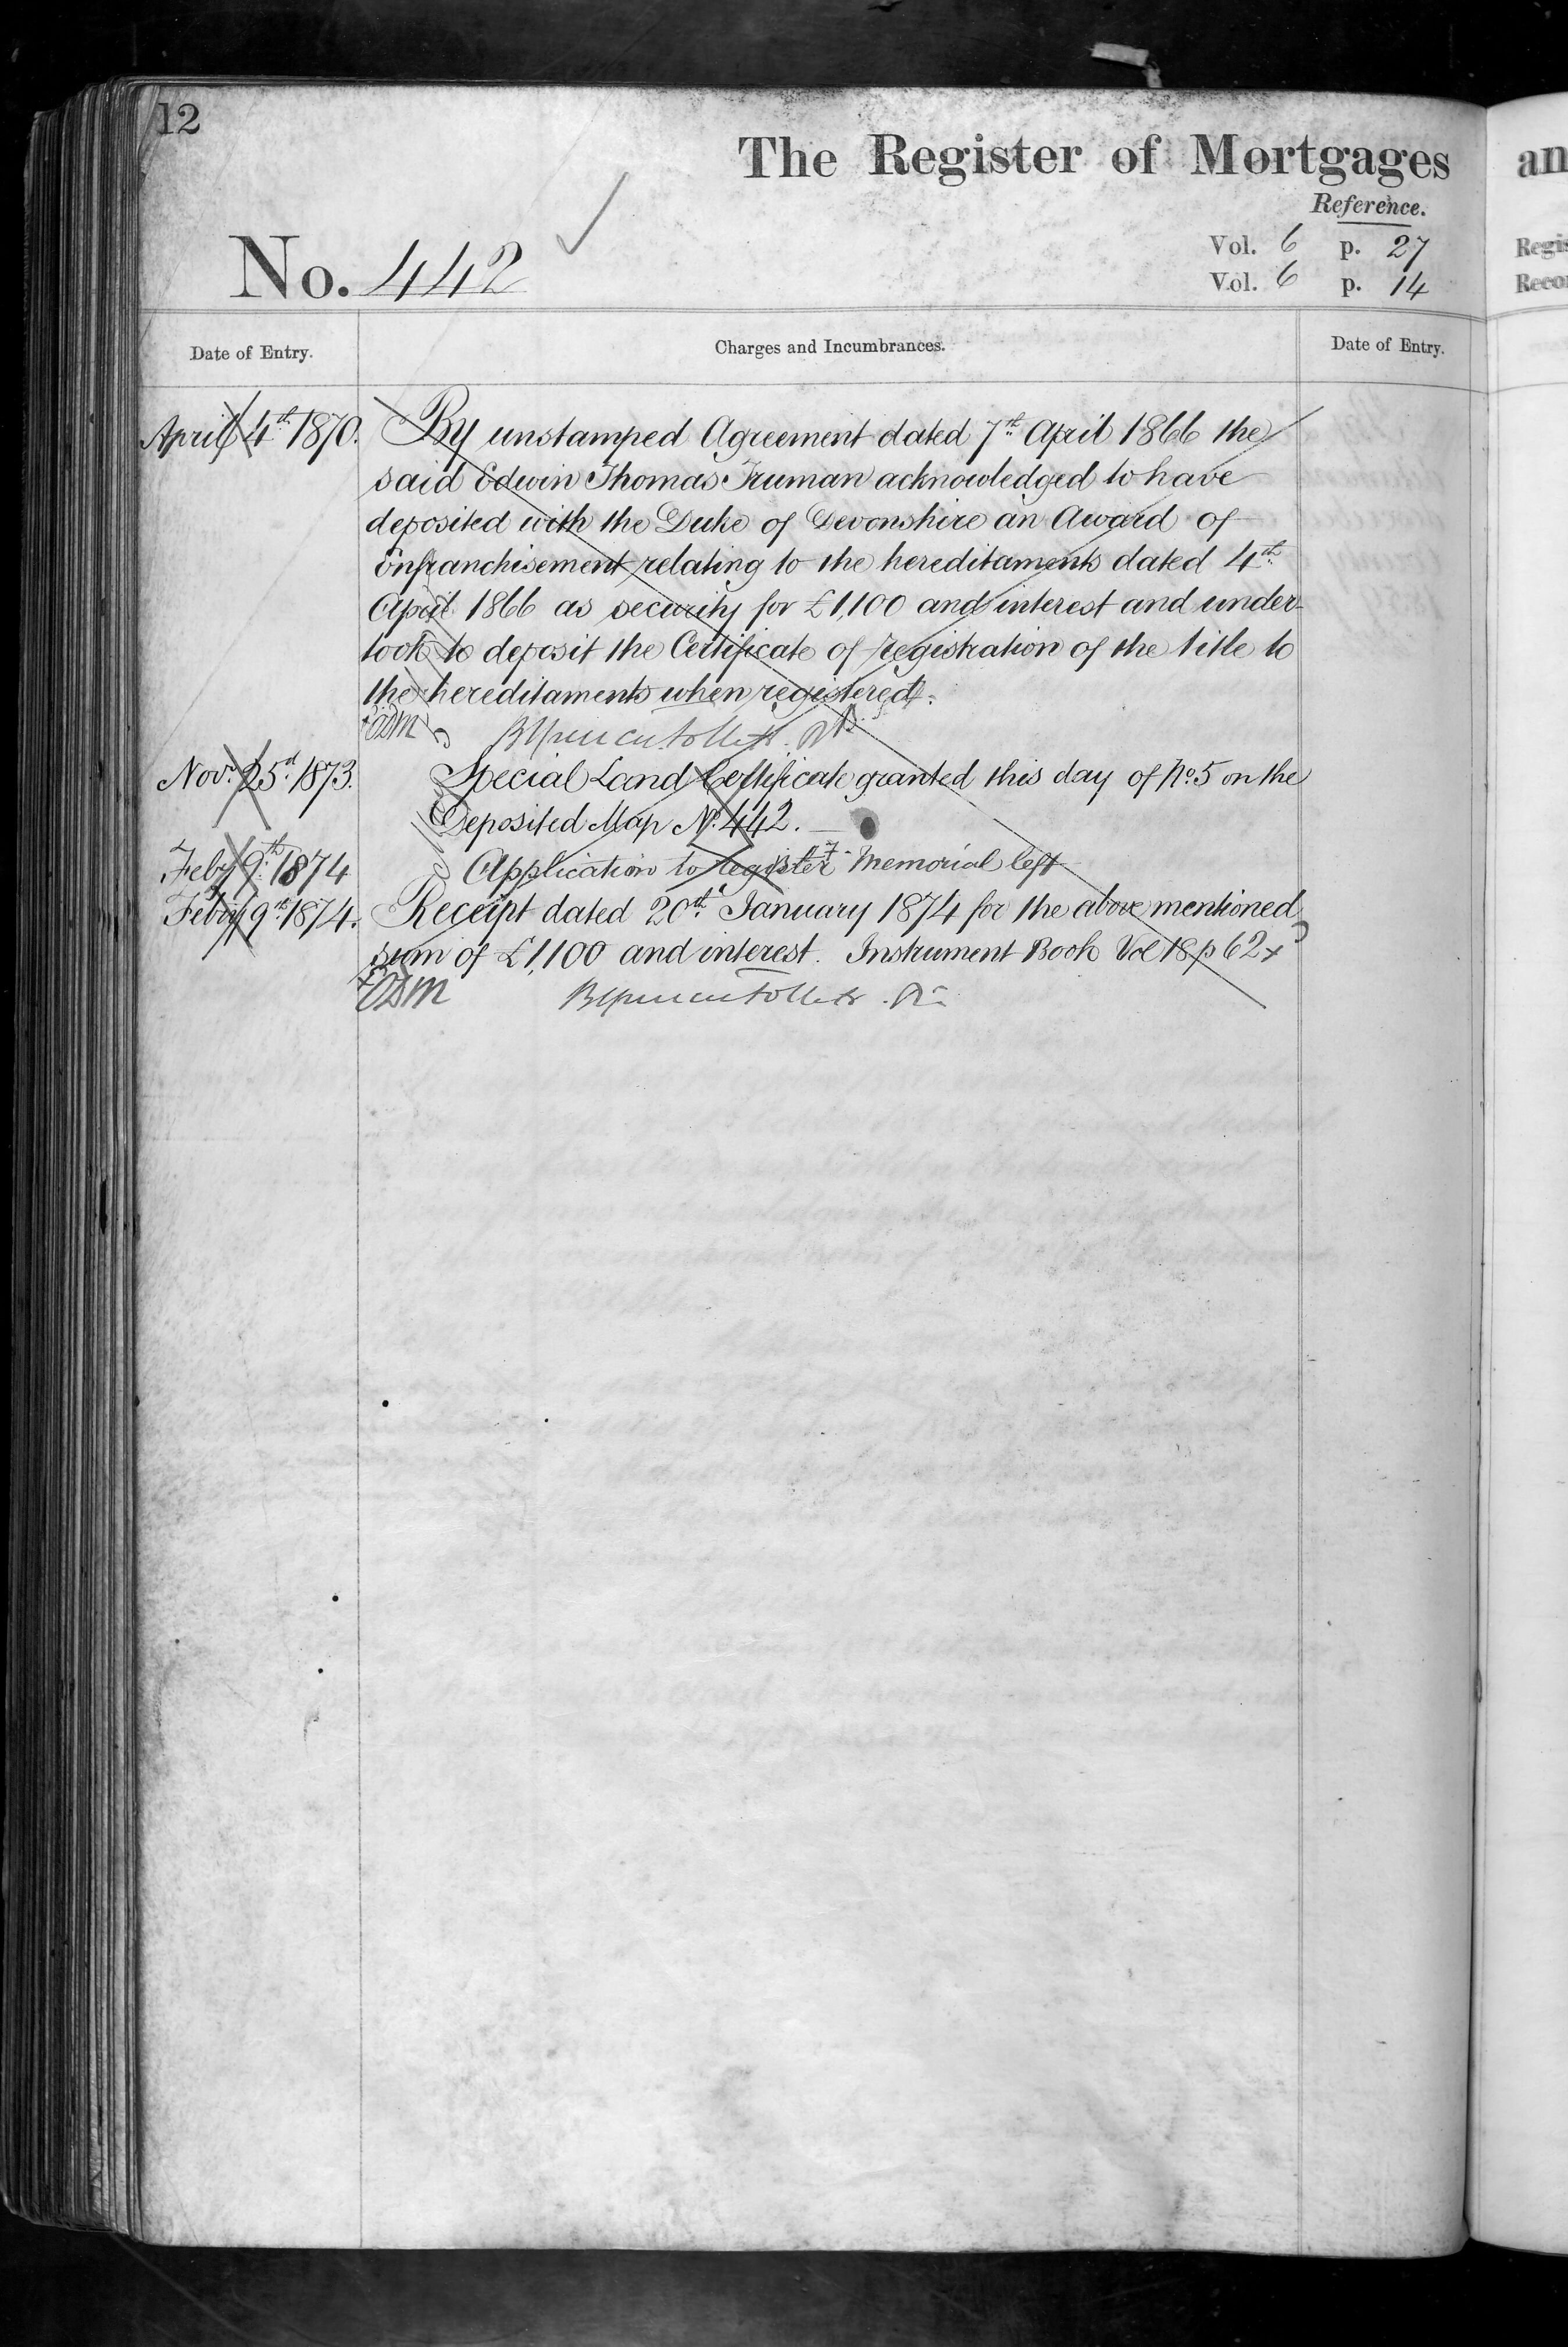 12
The Register of Mortgages
an
Reference.
No. 442
Vol. 6 p. 27
Vol. 6 p. 14
Regis
Recor
Date of Entry.
Charges and Incumbrances.
Date of Entry.
April 4th 1870. By unstamped Agreement dated 7th April 1866 the
said Edwin Thomas Truman acknowledged to have
deposited with the Duke of Devonshire an Award of
Enfranchisement relating to the hereditaments dated 4th
April 1866 as security for £1,100 and interest and under-
took to deposit the Certificate of registration of the title to
the hereditaments when registered.
Nov. 25th 1873. Special Land Certificate granted this day of No. 5 on the
Deposited Map No. 442.
Feby 9th 1874 Application to register Memorial left
Feby 9th 1874. Receipt dated 20th January 1874 for the above mentioned
sum of £1,100 and interest. Instrument Book Vol 18 p 62